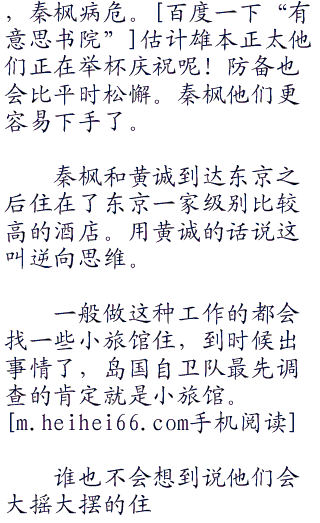 ，秦枫病危。[百度一下“有
意思书院”]估计雄本正太他
们正在举杯庆祝呢！防备也
会比平时松懈。秦枫他们更
容易下手了。
秦枫和黄诚到达东京之
后住在了东京一家级别比较
高的酒店。用黄诚的话说这
叫逆向思维。
一般做这种工作的都会
找一些小旅馆住，到时候出
事情了，岛国自卫队最先调
查的肯定就是小旅馆。
[m.heihei66.com手机阅读]
谁也不会想到说他们会
大摇大摆的住